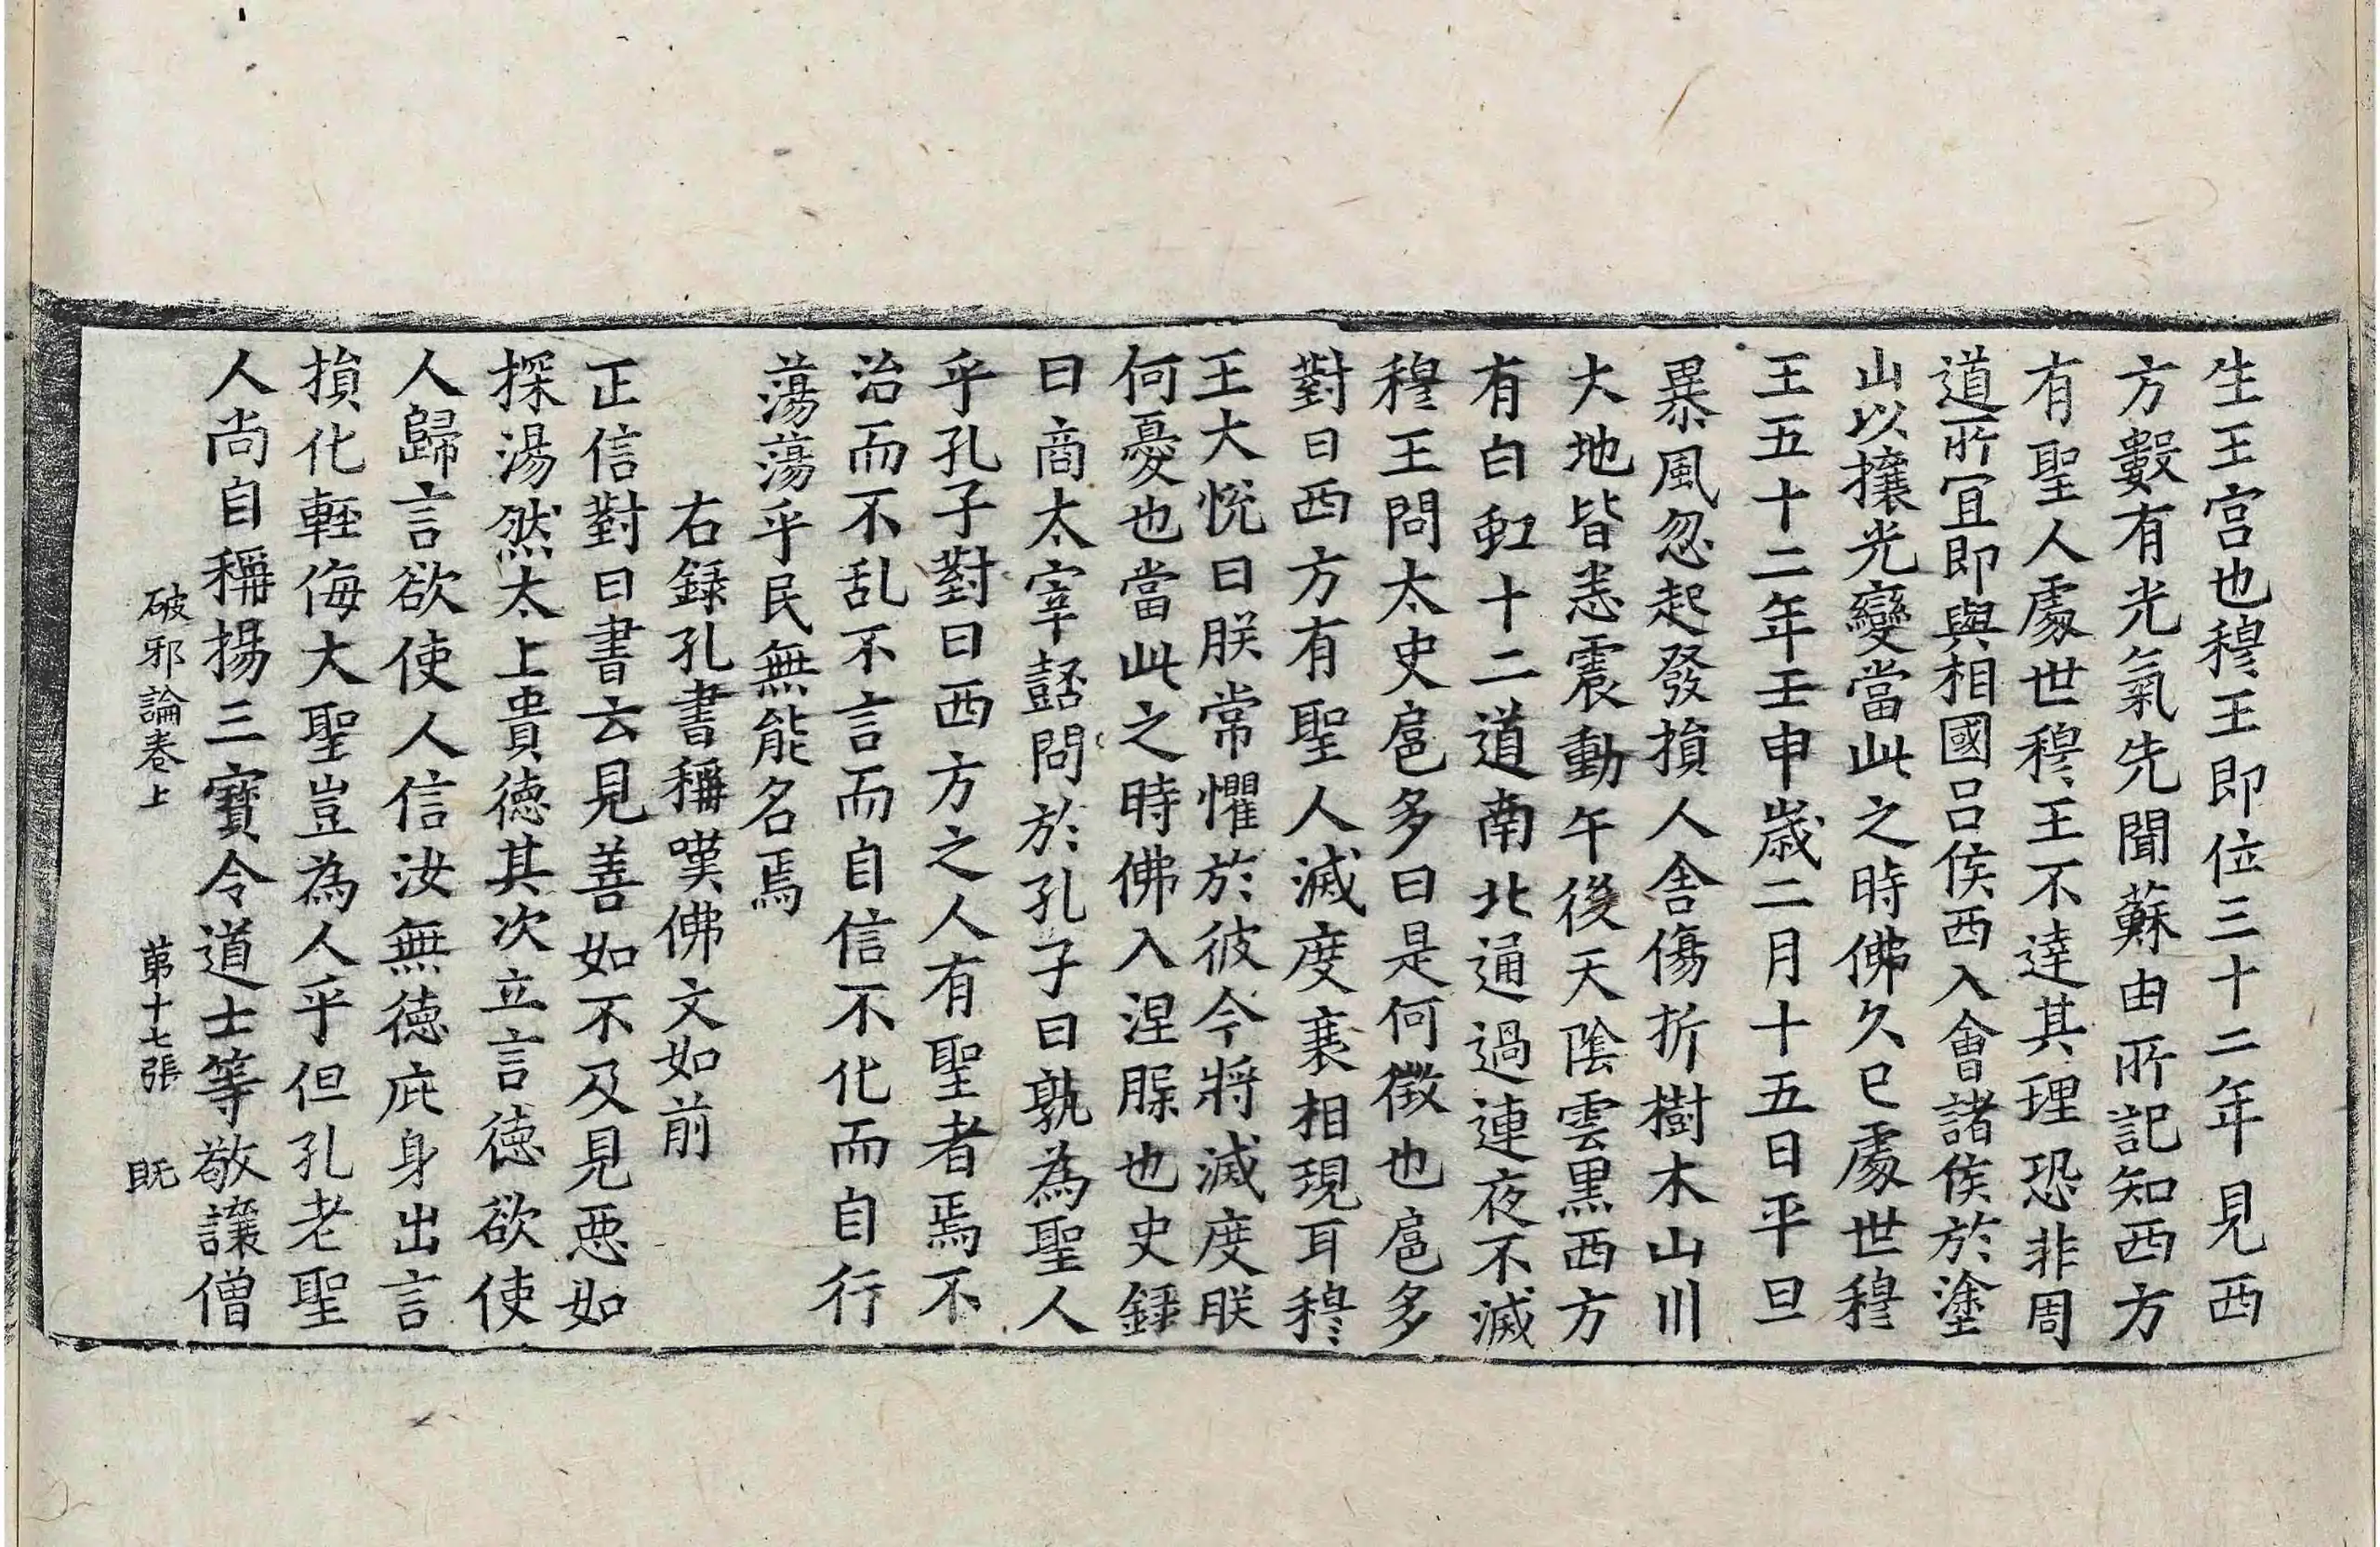 生王宫也穆王即位三十二年見西
方數有光氣先聞蘇由所記知西方
有聖人處世穆王不達其理恐非周
道所宜即與相國吕侯西入會諸侯於塗
山以攘光變當此之時佛久已處世穆
王五十二年壬申歲二月十五日平旦
暴風忽起發損人舍傷折樹木山川
大地皆悉震動午後天陰雲黑西方
有白虹十二道南北通過連夜不滅
穆王問太史扈多曰是何徵也扈多
對曰西方有聖人滅度衰相現耳穆
王大悅曰朕常懼於彼今將滅度朕
何憂也當此之時佛入涅槃也史録
曰商太宰嚭問於孔子曰孰為聖人
乎孔子對曰西方之人有聖者焉不
治而不乱不言而自信不化而自行
蕩蕩乎民無能名焉
右録孔書稱嘆佛文如前
正信對曰書云見善如不及見惡如
探湯然太上貴德其次立言德欲使
人歸言欲使人信汝無德庇身出言
損化輕侮大聖豈為人乎但孔老聖
人尚自稱揚三寶令道士等敬讓僧
破邪論卷上 第十七張 既